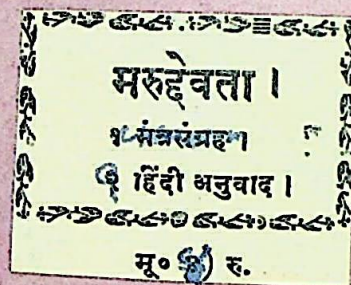 मरुद्देवता ।
मंत्रसंग्रह
हिंदी अनुवाद ।
मू० रु.